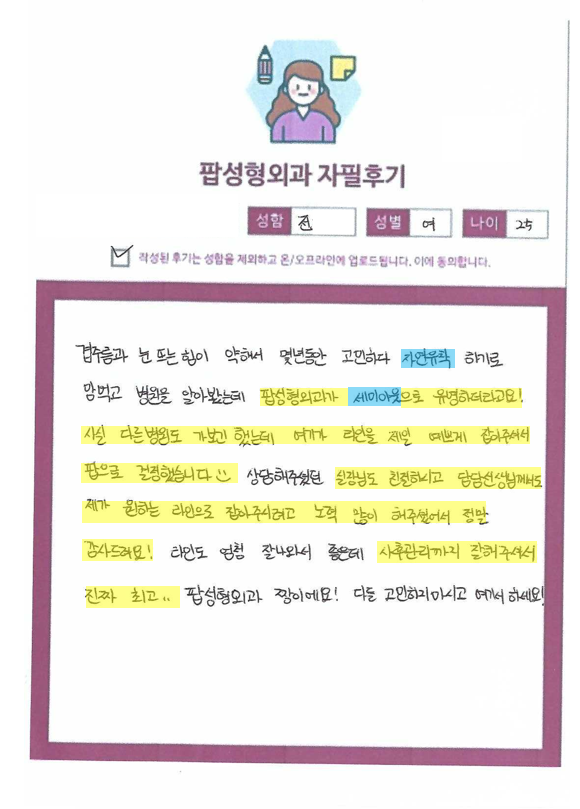 팝성형외과 자필후기
성함 전 성별 여 나이 25
작성된 후기는 성함을 제외하고 온/오프라인에 업로드됩니다. 이에 동의합니다.
겹주름과 눈 뜨는 힘이 약해서 몇년동안 고민하다 자연유착 하기로
맘먹고 병원을 알아봤는데 팝성형외과가 세미아웃으로 유명하더라고요!
사실 다른병원도 가보긴 했는데 여기가 라인을 제일 예쁘게 잡아주셔서
팝으로 결정했습니다 상담해주셨던 실장님도 친절하시고 담당선생님께서도
제가 원하는 라인으로 잡아주시려고 노력 많이 해주셨어서 정말
감사드려요! 라인도 엄청 잘나와서 좋은데 사후관리까지 잘해주셔서
진짜 최고.. 팝성형외과 짱이에요! 다들 고민하지마시고 여기서 하세요!